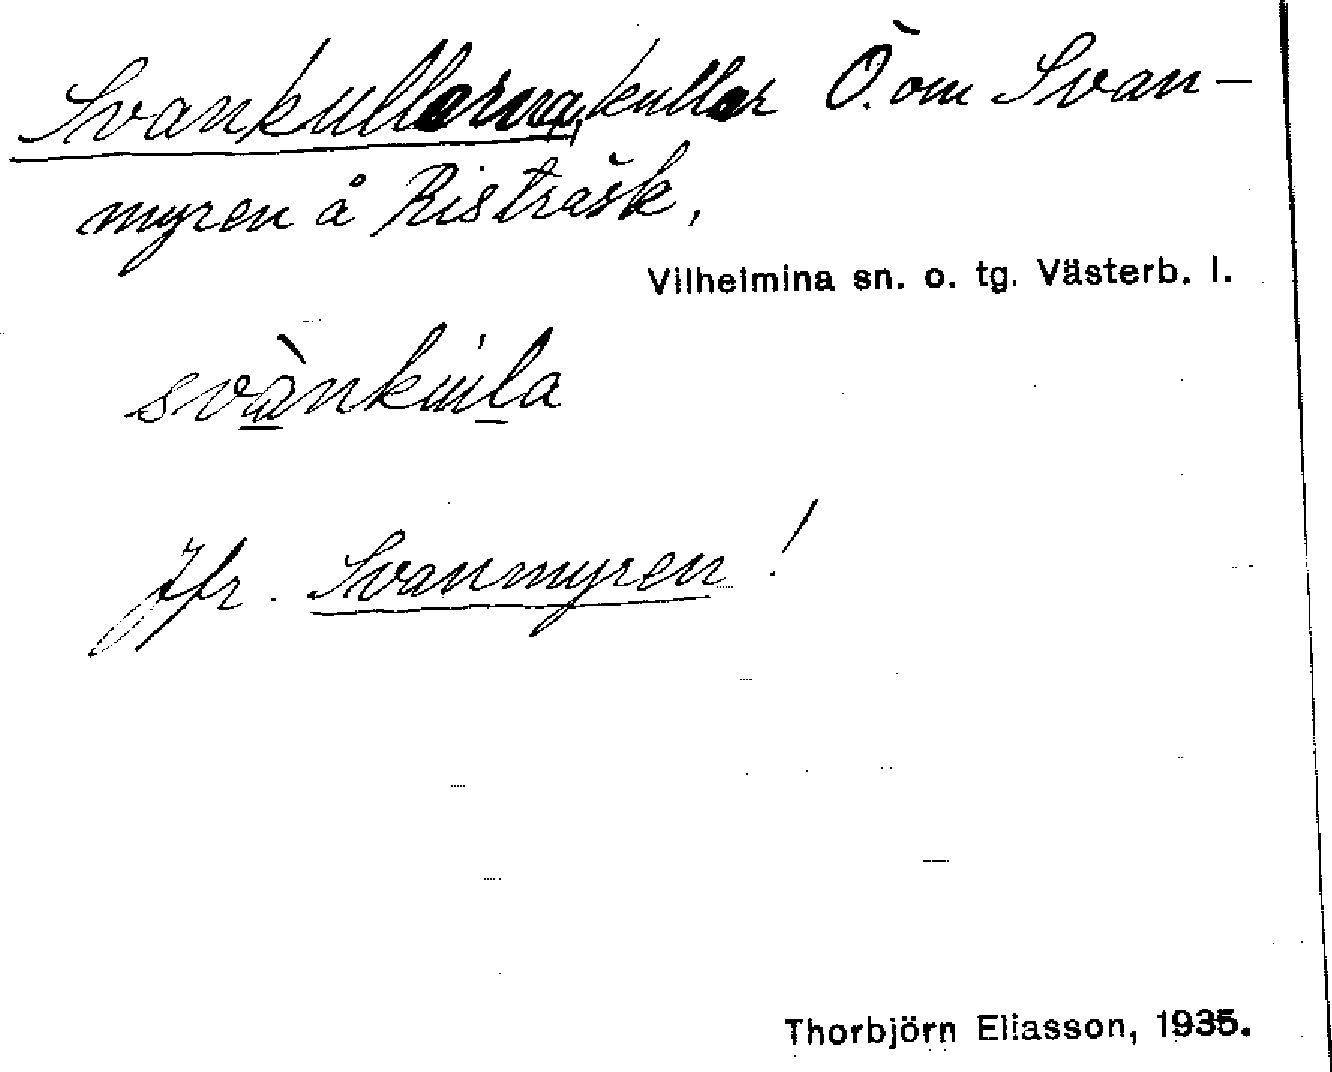 Svankullarna, kullar Ö. om Svan-
myren å Risträsk,
Vilhelmina sn. o. tg. Västerb. l.
svànkùla
Jfr. Svanmyren!
Thorbjörn Eliasson, 1935.